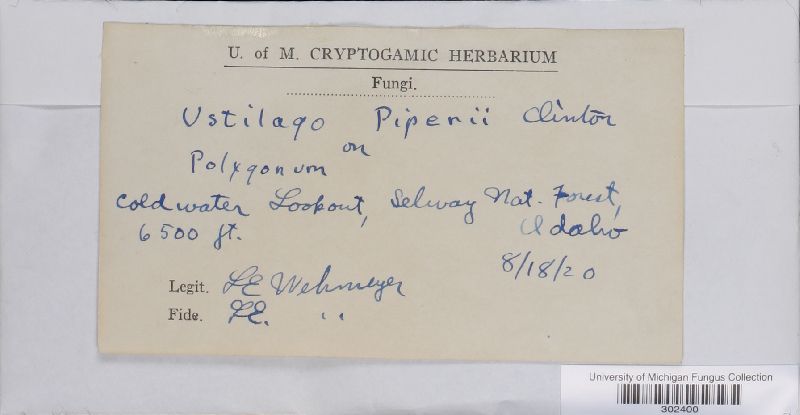 U. of M. CRYPTOGAMIC HERBARIUM
Fungi.
Ustilago Piperii Clinton
on
Polygonum
Coldwater Lookout, Selway Nat. Forest,
6500 ft. Idaho
8/18/20
Legit. LE Wehmeyer
Fide. LE. " "
University of Michigan Fungus Collection
302400